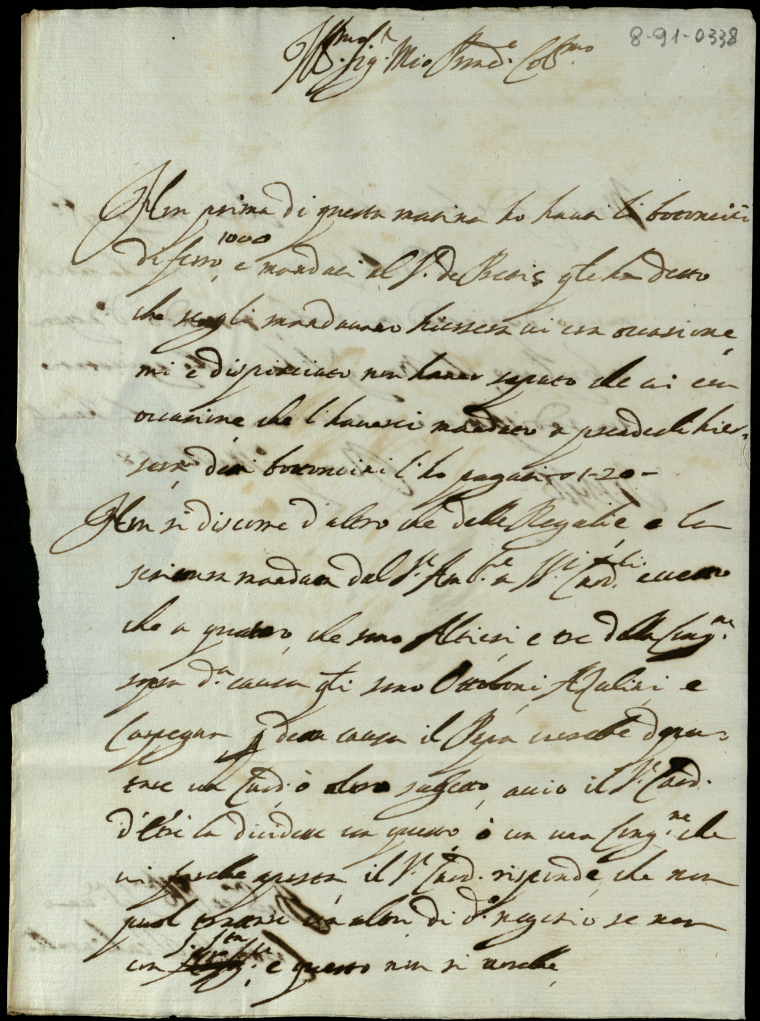 8-91-0338
Ill.mo Sig.r Mio Pron.e Col.mo
Non prima di questa matina ho hauti li bottoncini
di ferro 1000, e mandati al S.r de
che se gli mandauano hiersera ui era occasione,
mi è dispiaciuto non hauer saputo che ui era
occasione che l'hauerei mandato a prendere hier-
sera detti bottoncini l'ho pagati 1-20-
Non si discorre d'altro che delle Regalie e la
scrittura mandata dal S.r Amb.re a SS.ri Card.li eccetto
che a quattro, che sono Altieri, e tre della Cong.ne
sopra d.a causa gli sono Ottoboni, Azzolini e
Carpegna, p detta causa il Papa uorebbe depu-
tare un Card. ò altro suggetto, acciò il S.r Card.
d'Etré la discuta con questo, ò con una Cong.ne che
ui sarebbe aposta, il S.r Card. risponde, che non
puol trattare con altri di d.o negotio se non
con S. S.tà, e questo non si uorebbe